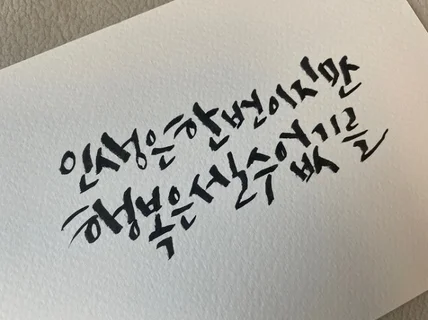 인생은 한번이지만
행복은 셀수없기를